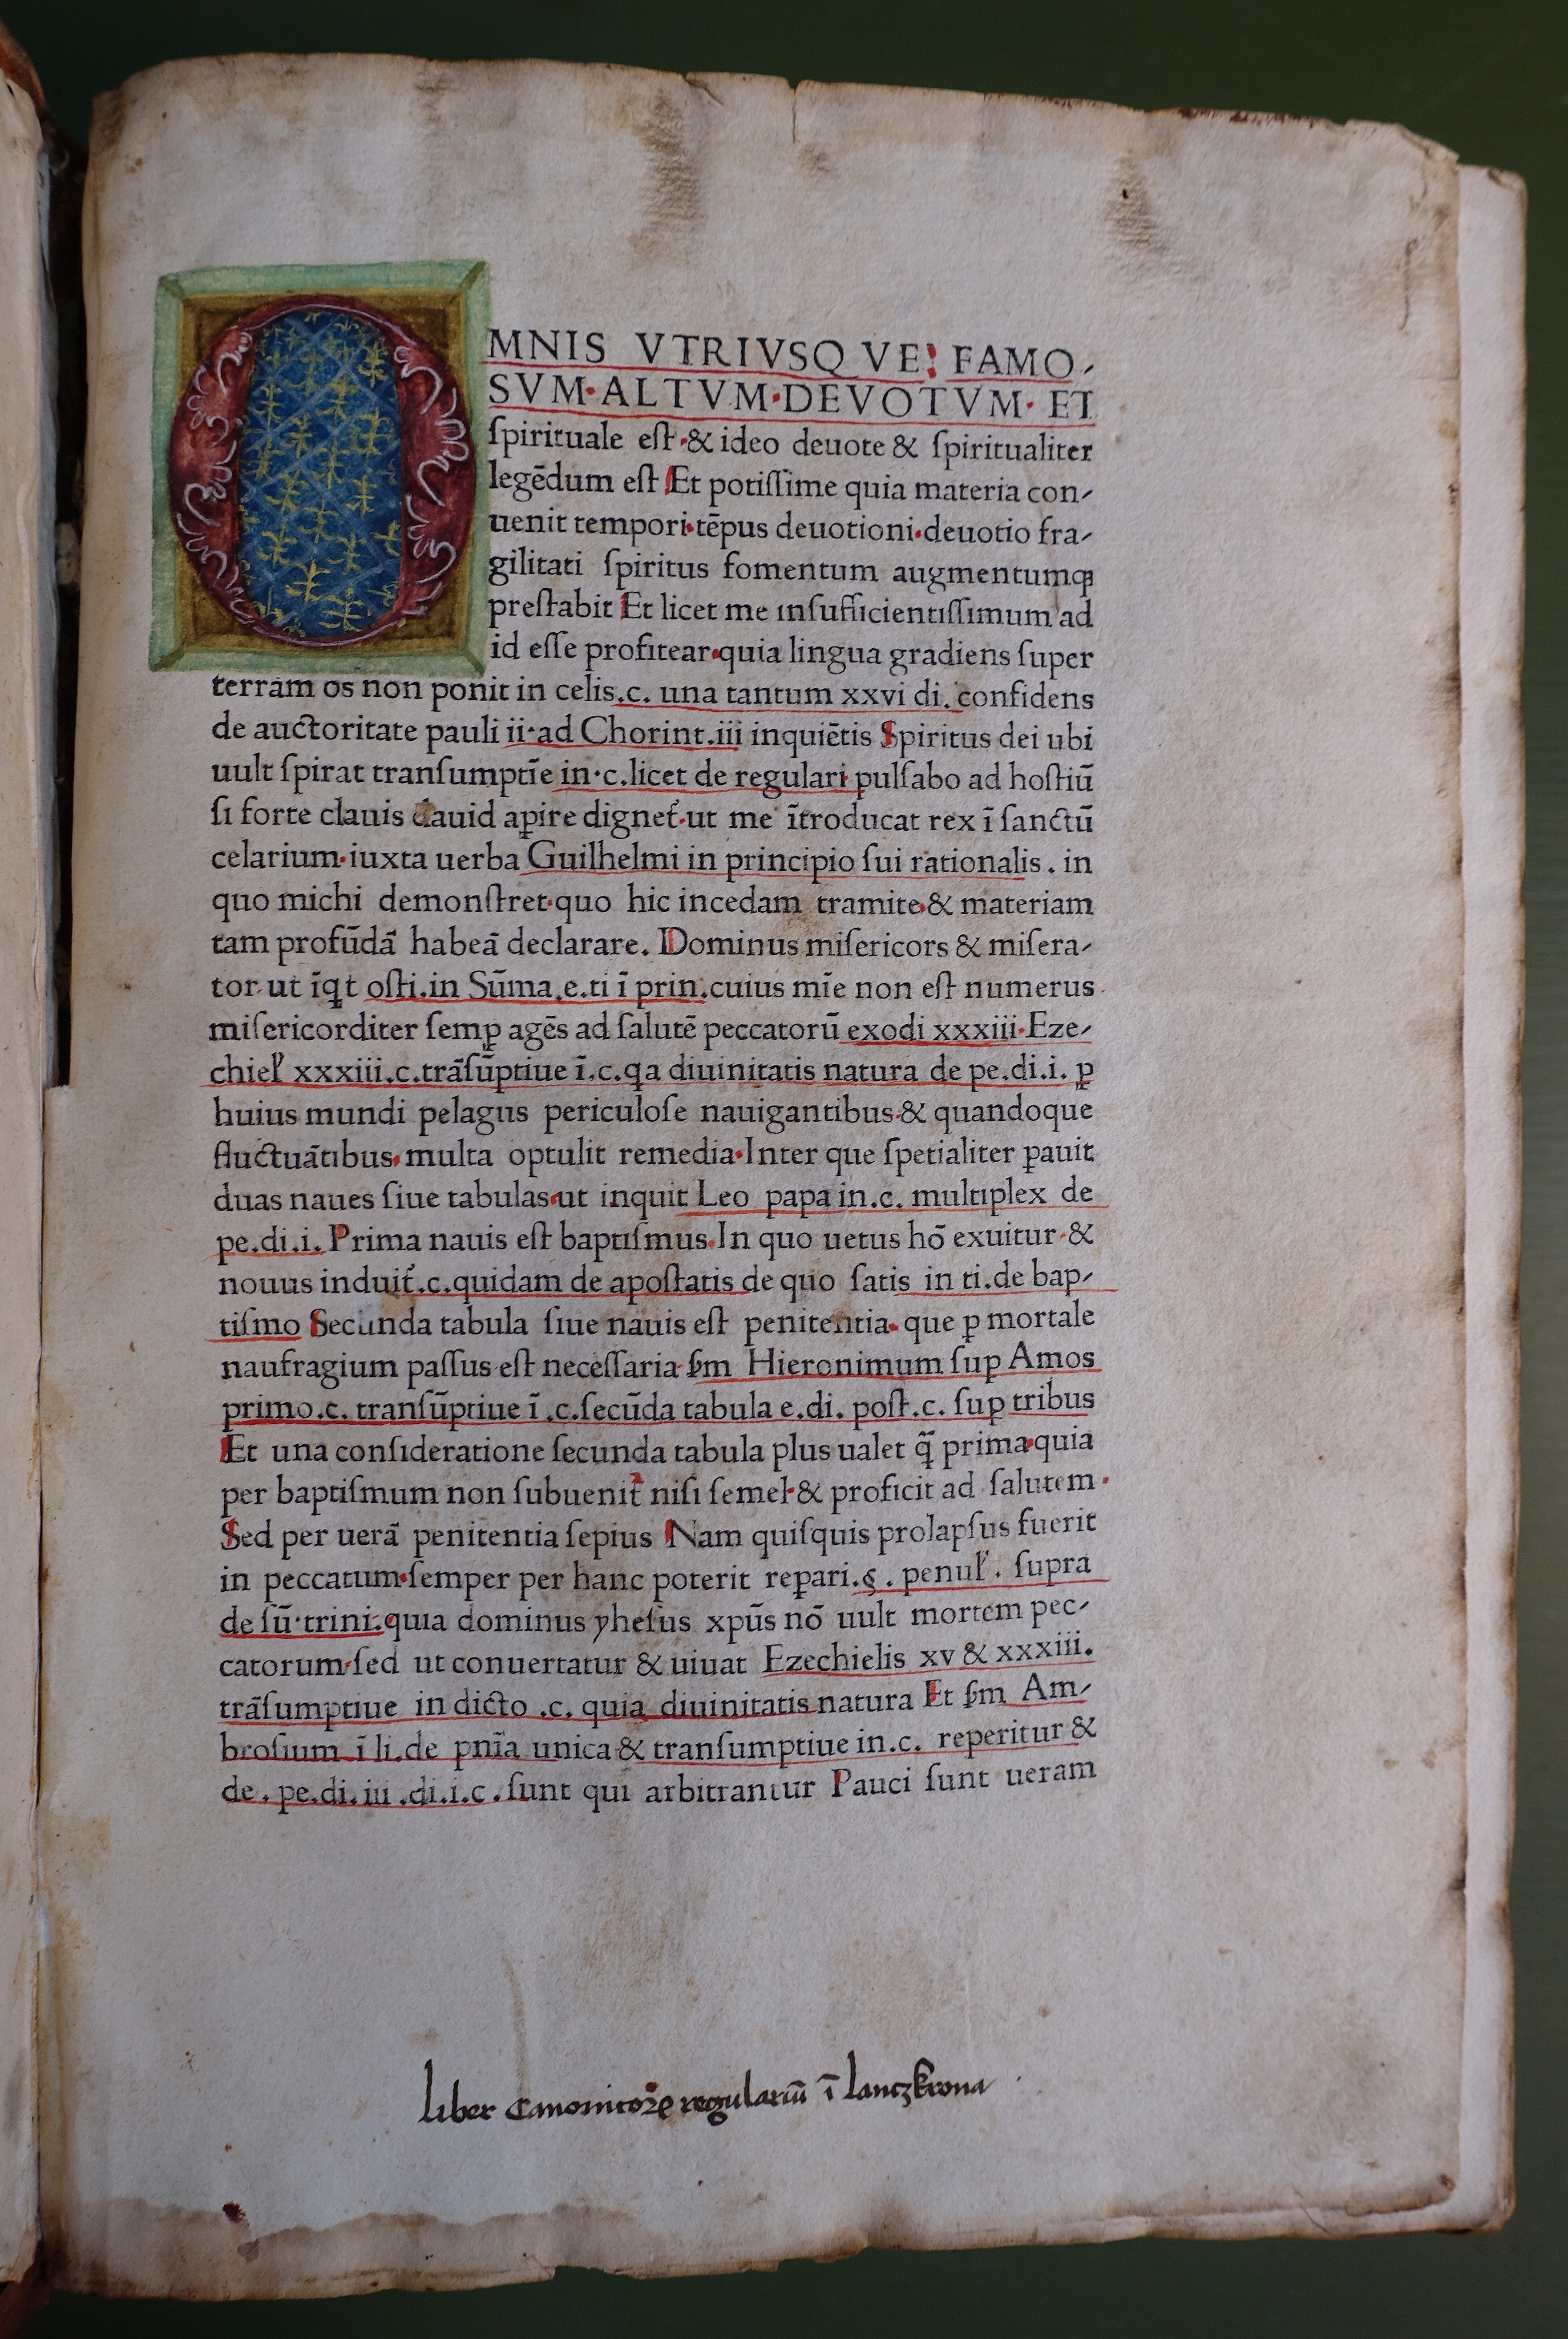 OMNIS VTRIVSQVE: FAMO-
SVM·ALTVM·DEVOTVM· ET
ſpirituale eſt·& ideo deuote & ſpiritualiter
legēdum eſt Et potiſſime quia materia con-
uenit tempori·tēpus deuotioni·deuotio fra-
gilitati ſpiritus fomentum augmentumqꝫ
preſtabit Et licet me inſufficientiſſimum ad
id eſſe profitear·quia lingua gradiens ſuper
terram os non ponit in celis.c. una tantum xxvi di. confidens
de auctoritate pauli ii·ad Chorint.iii inquiētis Spiritus dei ubi
uult ſpirat tranſumptīe in·c.licet de regulari· pulſabo ad hoſtiū
ſi forte clauis dauid aꝑire dignet᷑·ut me ītroducat rex ī ſanctū
celarium·iuxta uerba Guilhelmi in principio ſui rationalis. in
quo michi demonſtret·quo hic incedam tramite·& materiam
tam profūdā habeā declarare. Dominus miſericors & miſera-
tor·ut īqt oſti.in Sūma.e.ti ī prin.cuius mīe non eſt numerus·
miſericorditer ſemꝑ agēs ad ſalutē peccatorū exodi xxxiii·Eze-
chiel' xxxiii.c.trāſūptiue ī.c.qa diuinitatis natura de pe.di.i. ꝑ
huius mundi pelagus periculoſe nauigantibus·& quandoque
fluctuātibus·multa optulit remedia·Inter que ſpetialiter ꝑauit
duas naues ſiue tabulas·ut inquit Leo papa in.c. multiplex de
pe.di.i. Prima nauis eſt baptiſmus·In quo uetus hō exuitur·&
nouus induit᷑.c.quidam de apoſtatis de quo ſatis in ti.de bap-
tiſmo Secunda tabula ſiue nauis eſt penitentia· que ꝑ mortale
naufragium paſſus·eſt neceſſaria ẜm Hieronimum ſuꝑ Amos
primo.c. tranſūptiue ī .c.ſecūda tabula e.di. poſt.c. ſuꝑ tribus
Et una conſideratione ſecunda tabula plus ualet q̄̄ prima·quia
per baptiſmum non ſubuenit᷑ niſi ſemel·& proficit ad ſalutem·
Sed per uerā penitentia ſepius Nam quiſquis prolapſus fuerit
in peccatum·ſemper per hanc poterit reꝑari.ꝯ. penul'. ſupra
de ſū·trini:quia dominus yheſus xpūs nō uult mortem pec-
catorum·ſed ut conuertatur & uiuat Ezechielis xv & xxxiii.
trāſumptiue in dicto .c. quia diuinitatis natura Et ẜm Am-
broſium ī li.de pnīa unica & tranſumptiue in.c. reperitur &
de. pe.di.iii .di.i.c.ſunt qui arbitrantur Pauci ſunt ueram
liber Canonicoꝝ regulariū ī lanczkrona